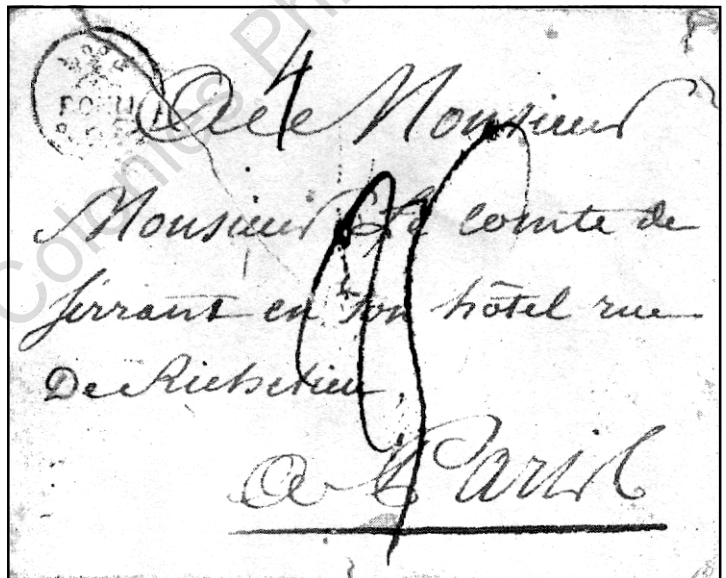 Colonies Ph
4
A Monsieur
Monsieur Le comte de
ferrant en son hôtel rue
De Richelieu.
a Paris